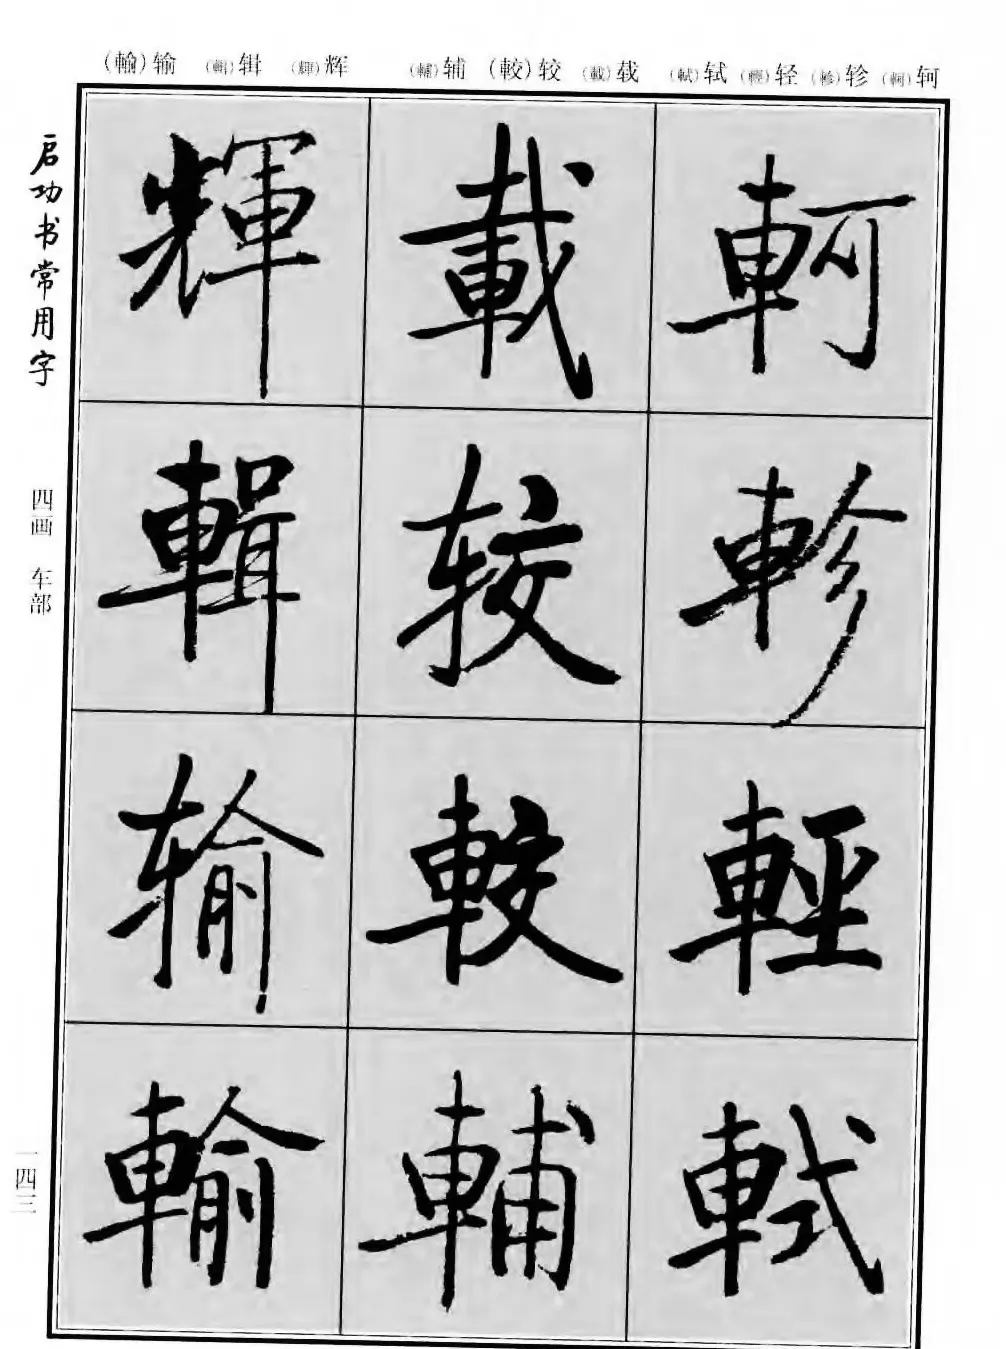 (輸)输 (輯)辑 (輝)辉 (輔)辅 (較)较 (載)载 (軾)轼 (輕)轻 (軫)轸 (軻)轲
軻
軫
輕
軾
載
较
較
輔
輝
輯
输
輸
启功书常用字
四画 车部
一四三